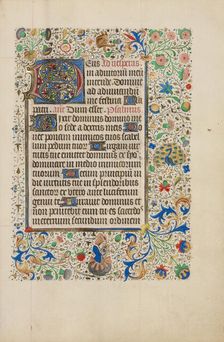 Deus Ad vesperas
in adiutorium meum
intende Domine
ad adiuuandum
me festina Gloria
patri. añ. Dum esset. Psalmus.
Dixit dominus domino me
o sede a dextris meis
Donec ponam inimicos tuos scabel
lum pedum tuorum Virgam uirtu
tis tue emittet dominus ex syon
dominare in medio inimicorum
tuorum Tecum principium in di
e uirtutis tue in splendoribus
sanctorum ex utero ante luciferum
genui te Iurauit dominus et
non penitebit eum tu es sacerdos
in eternum secundum ordinem